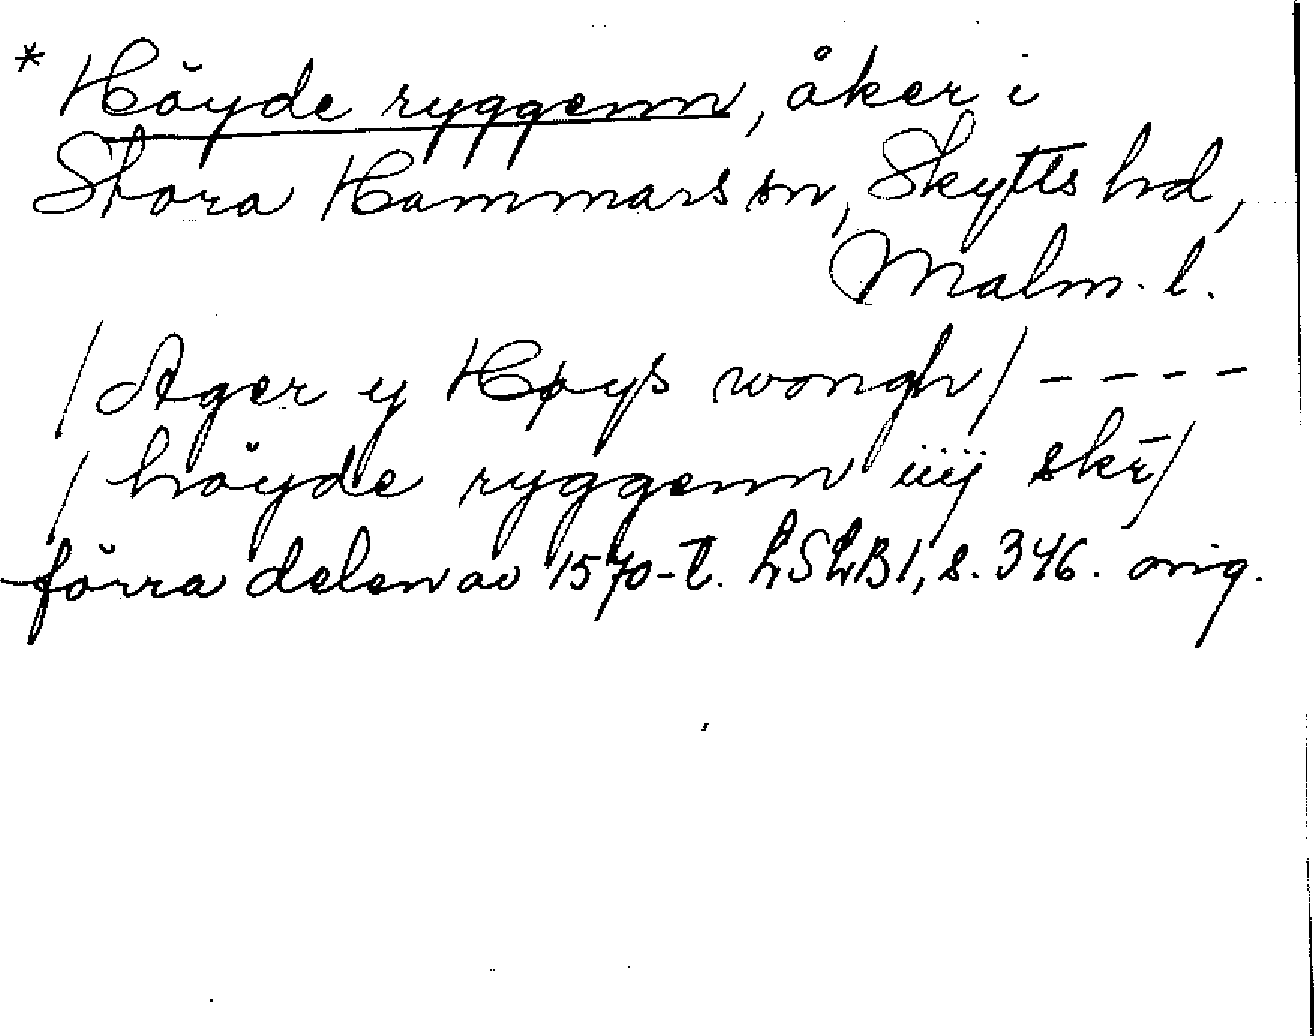 * Höyde ryggenn, åker i
Stora Hammars sn, Skytts hd,
Malm. l.
/Ager y Høys wongh/ - - - -
/höyde ryggenn iiij skr̄/
förra delen av 1570-t. LSLB1, s. 346. orig.